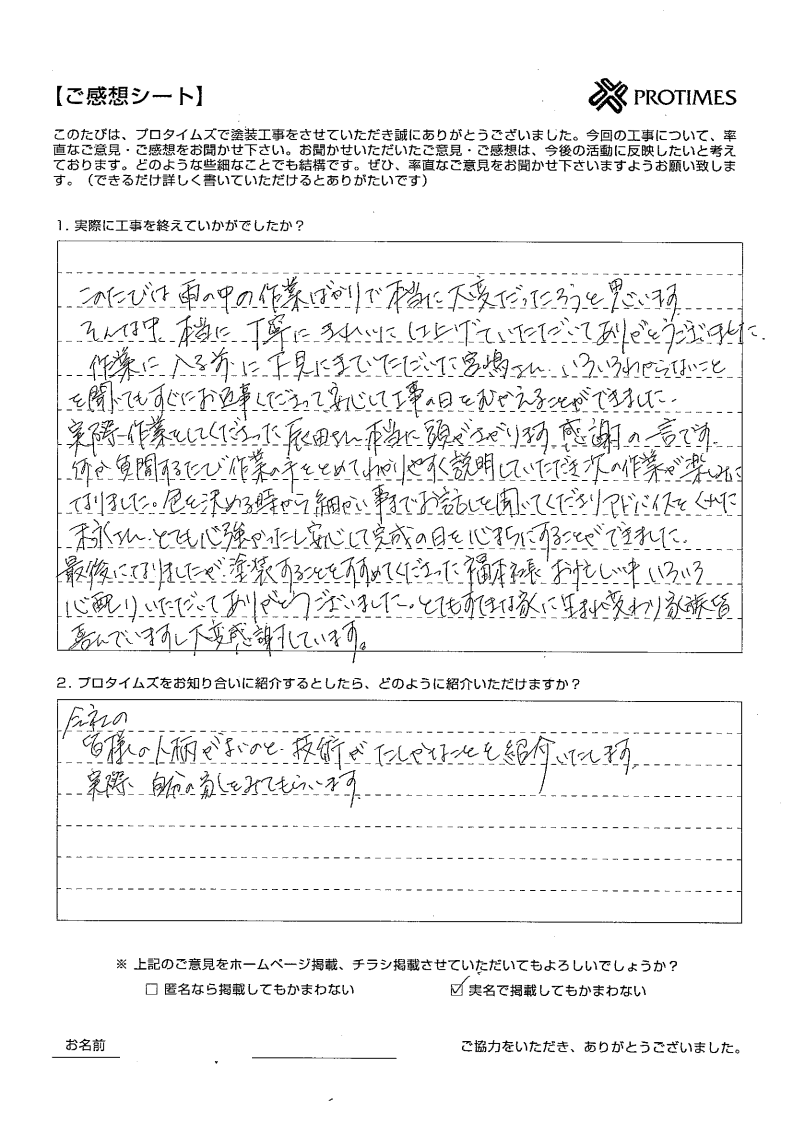 【ご感想シート】
PROTIMES
このたびは、プロタイムズで塗装工事をさせていただき誠にありがとうございました。今回の工事について、率
直なご意見・ご感想をお聞かせ下さい。お聞かせいただいたご意見・ご感想は、今後の活動に反映したいと考え
ております。どのような些細なことでも結構です。ぜひ、率直なご意見をお聞かせ下さいますようお願い致しま
す。（できるだけ詳しく書いていただけるとありがたいです）
1. 実際に工事を終えていかがでしたか？
このたびは雨の中の作業ばかりで本当に大変だったろうと思います
そんな中、本当に丁寧にきれいに仕上げていただいてありがとうございました.
作業に入る前に下見にきていただいた宮嶋さん、いろいろわからないこと
を聞いてもすぐにお返事くださって安心して工事の日をむかえることができました.
実際作業をしてくださった辰田さん本当に頭がさがります。感謝の一言です。
何か質問するたび作業の手をとめてわかりやすく説明していただき次の作業が楽しみに
なりました。色を決める時から細かい事までお話しを聞いてくださりアドバイスをくれた
末永さん、とても心強かったし安心して完成の日を心まちにすることができました.
最後になりましたが塗装することをすすめてくださった福本社長 お忙しい中いろいろ
心配りいただいてありがとうございました。とてもすてきな家に生まれ変わり家族皆
喜んでいますし大変感謝しています。
2. プロタイムズをお知り合いに紹介するとしたら、どのように紹介いただけますか？
会社の
皆様の人柄がよいのと、技術がたしかなことを紹介いたします。
実際、自分の家をみてもらいます。
※ 上記のご意見をホームページ掲載、チラシ掲載させていただいてもよろしいでしょうか？
□ 匿名なら掲載してもかまわない ☑ 実名で掲載してもかまわない
お名前 ご協力をいただき、ありがとうございました。